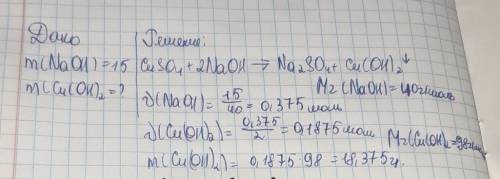 Дано
Решение:
m(NaOH)=15
CuSO₄+2NaOH→Na₂SO₄+Cu(OH)₂↓
m(Cu(OH)₂=?
Mr(NaOH)=40г/моль
ν(NaOH)=15/40=0,375 моль
ν(Cu(OH)₂)=0,375/2=0,1875 моль
Mr(Cu(OH)₂=98г/моль
m(Cu(OH)₂)=0,1875·98=18,375г.